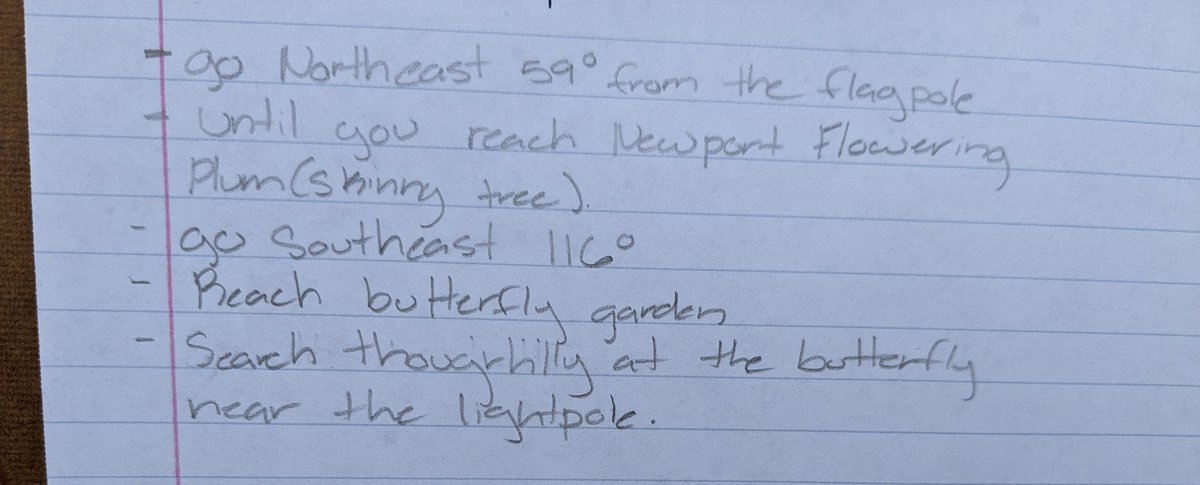 - go Northeast 59° from the flagpole
- until you reach Newport Flowering
Plum (skinny tree).
- go Southeast 116°
- Reach butterfly garden
- Search thoughrilly at the butterfly
near the lightpole.